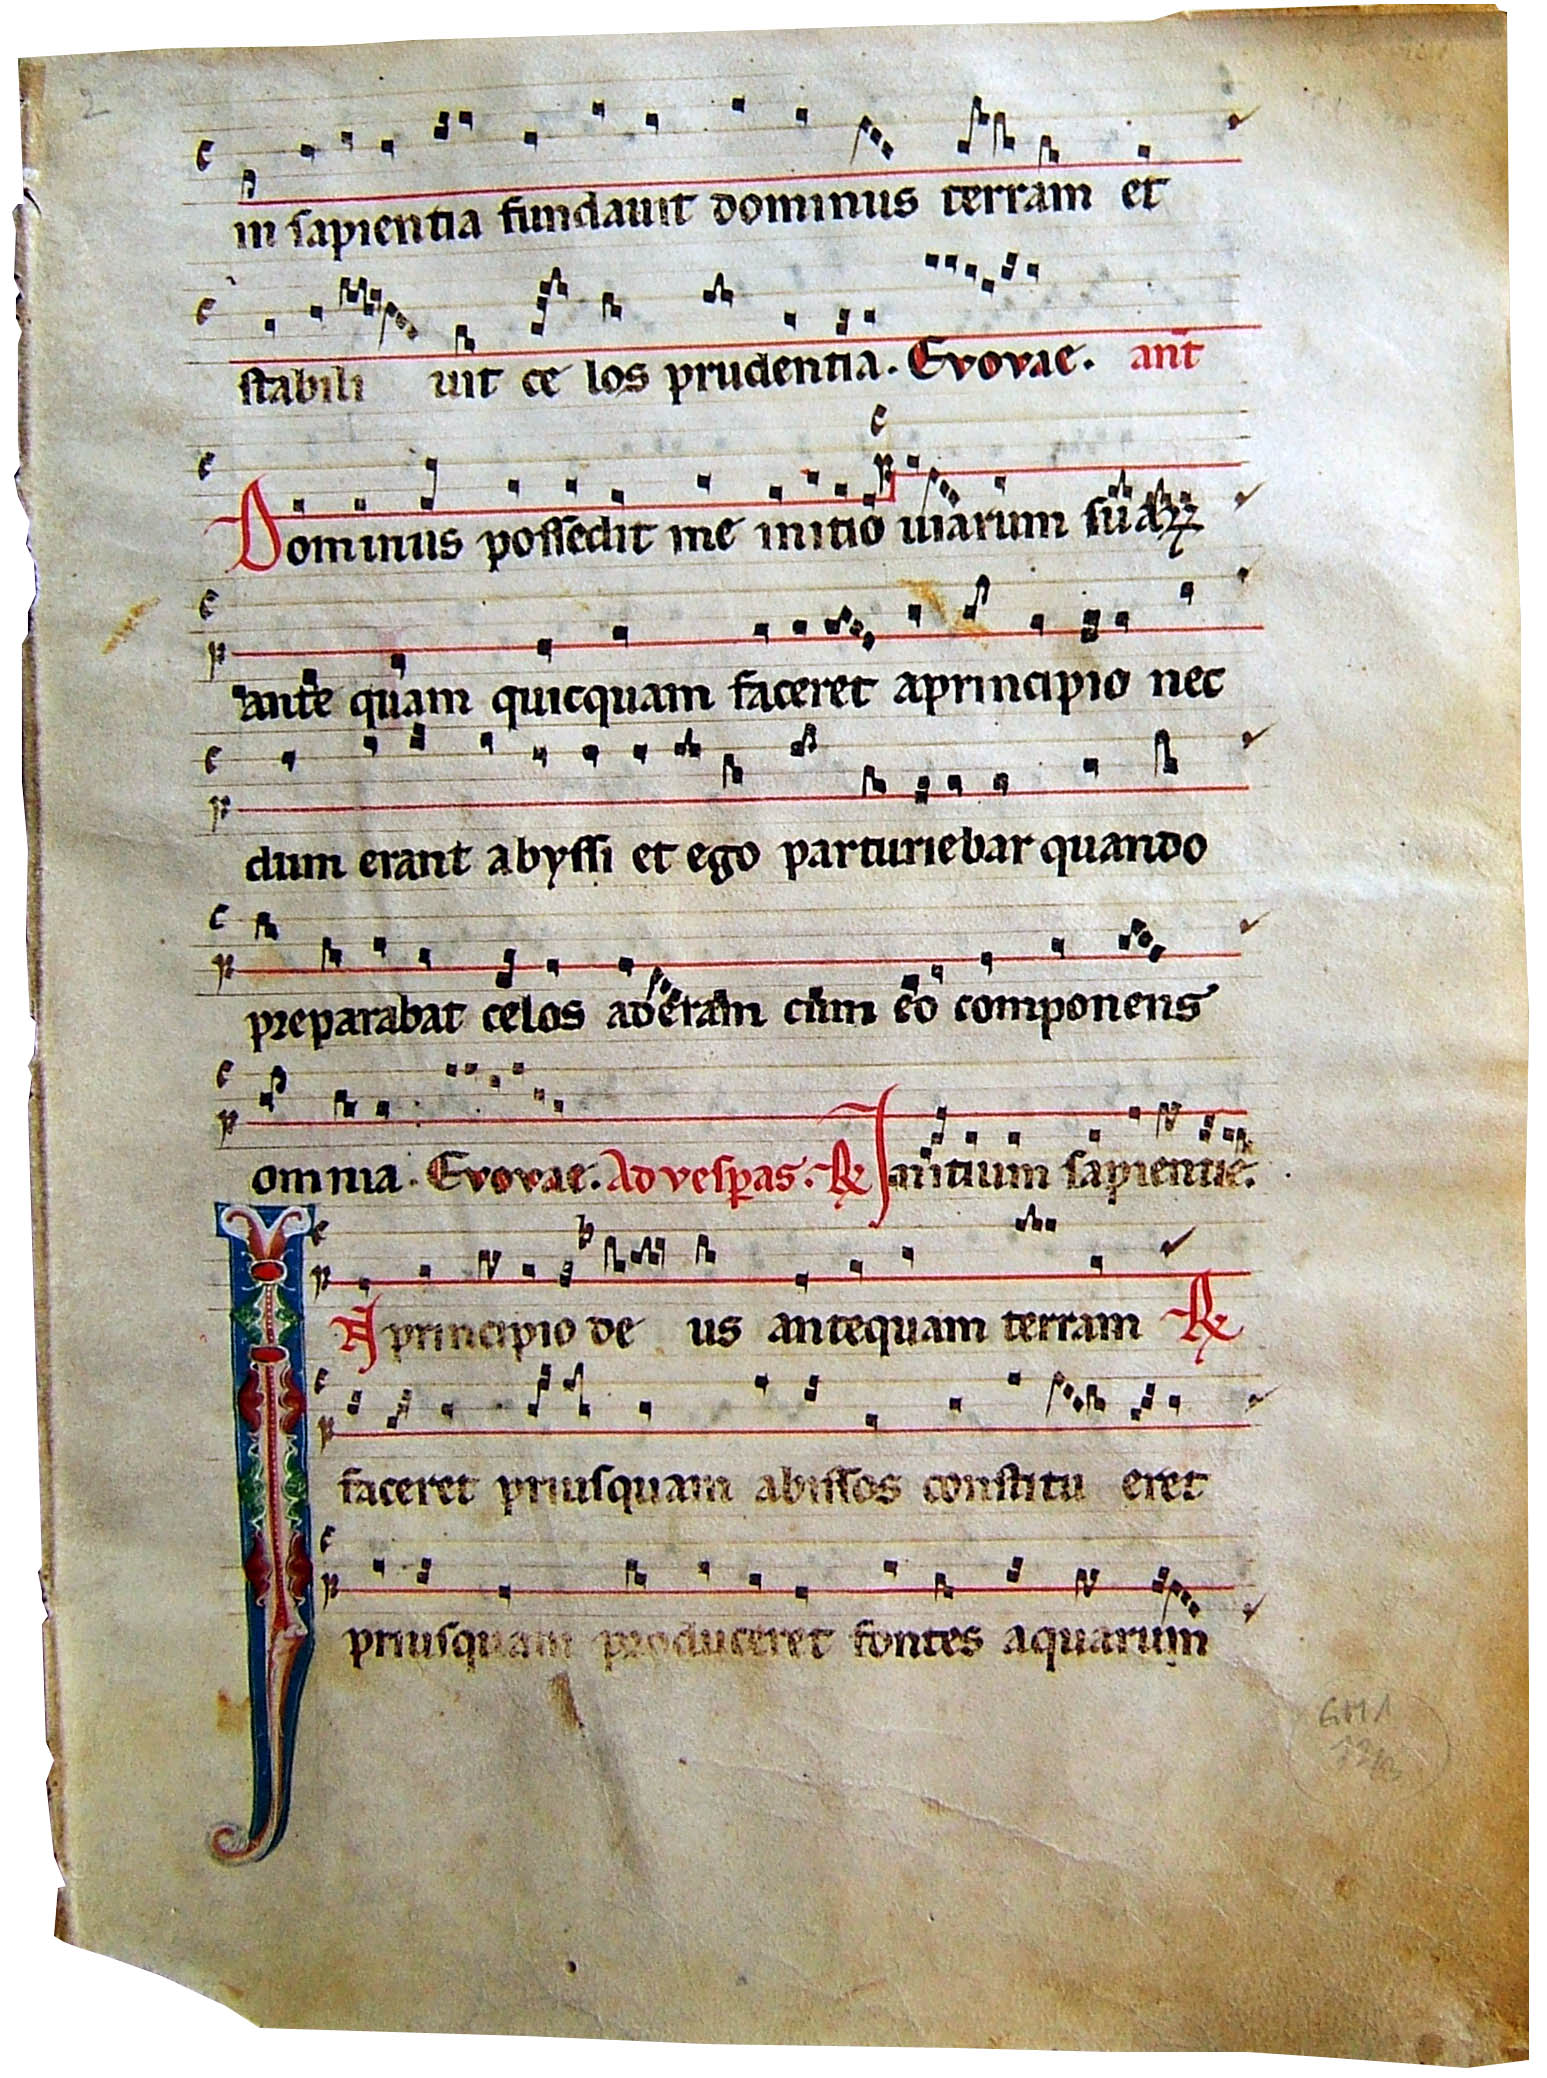 2
in sapientia fundauit dominus terram et
stabili uit ce los prudentia. Evovae. ant
Dominus possedit me initio uiarum suaꝝ
ante quam quicquam faceret aprincipio nec
dum erant abyssi et ego parturiebar quando
preparabat celos aderam cum eo componens
omnia. Evovae. Ad vesꝑas. ℟ Initium sapientie.
A principio de us antequam terram ℟
faceret priusquam abissos constitu eret
priusquam produceret fontes aquarum